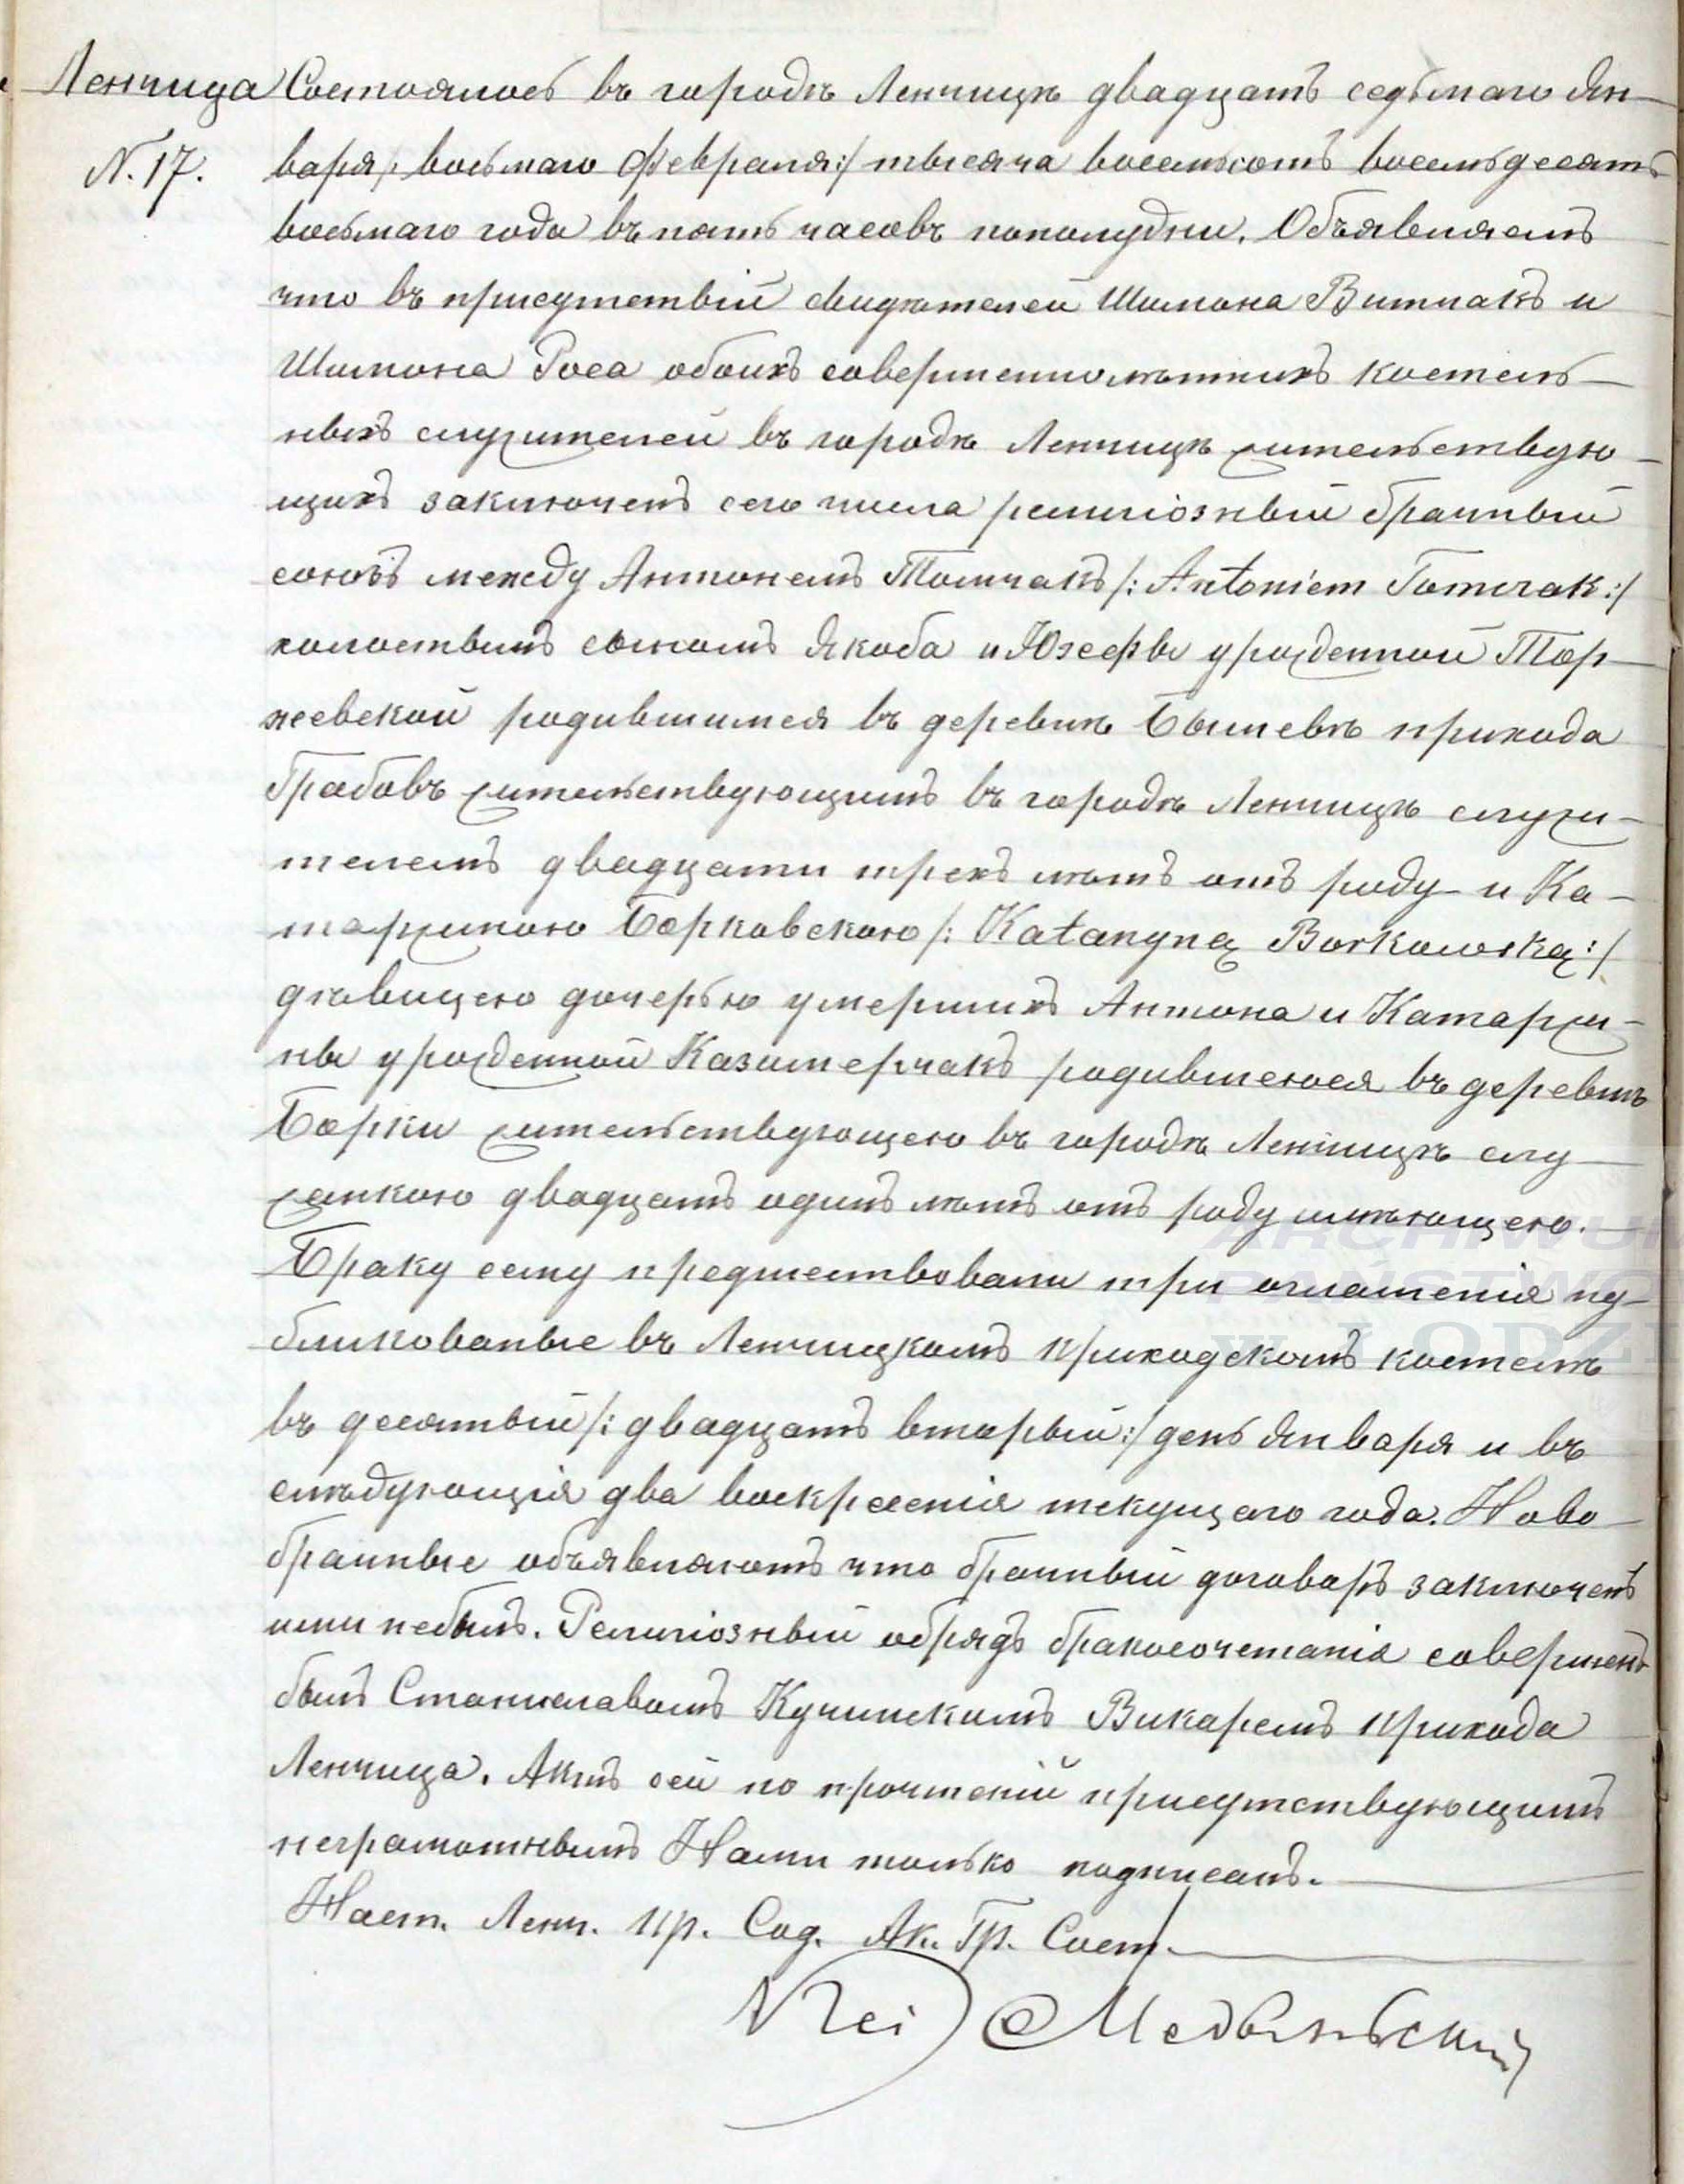 Ленчица
N. 17.
Состоялось въ городѣ Ленчицѣ двадцать седьмаго Ян-
варя /: восьмаго Февраля :/ тысяча восемьсотъ восемьдесятъ
восьмаго года въ пять часовъ пополудни. Объявляемъ
что въ присутствій свидѣтелей Шимона Витчакъ и
Шимона Роса обоихъ совершеннолѣтнихъ костель-
ныхъ служителей въ городѣ Ленчицѣ жительствую-
щихъ заключенъ сего числа религіозный брачный
союзъ между Антонемъ Томчакъ /: Antoniem Tomczak :/
холостымъ сыномъ Якоба и Юзефы урожденной Тор-
жевской родившимся въ деревнѣ Бышевѣ прихода
Грабовъ жительствующимъ въ городѣ Ленчицѣ служи-
телемъ двадцати трехъ лѣтъ отъ роду и Ка-
таржиною Борковскою /: Katarzyną Borkowską :/
дѣвицею дочерью умершихъ Антона и Катаржи-
ны урожденной Казимерчакъ родившеюся въ деревнѣ
Борки жительствующею въ городѣ Ленчицѣ слу-
жанкою двадцать одинъ лѣтъ отъ роду имѣющею.
Браку сему предшествовали три оглашенія пу-
бликованые въ Ленчицкомъ приходскомъ костелѣ
въ десятый /: двадцать вторый :/ день Января и въ
слѣдующія два воскресенія текущаго года. Ново-
брачные объявляютъ что брачный договоръ заключенъ
ими небылъ. Религіозный обрядъ бракосочетанія совершенъ
былъ Станиславомъ Кучинскимъ Викаремъ прихода
Ленчица. Актъ сей по прочтеній присутствующимъ
неграмотнымъ Нами только подписанъ.
Наст. Ленч. Пр. Сод. Ак. Гр. Сост.
ARCHIWUM
PAŃSTWO
W ŁODZI